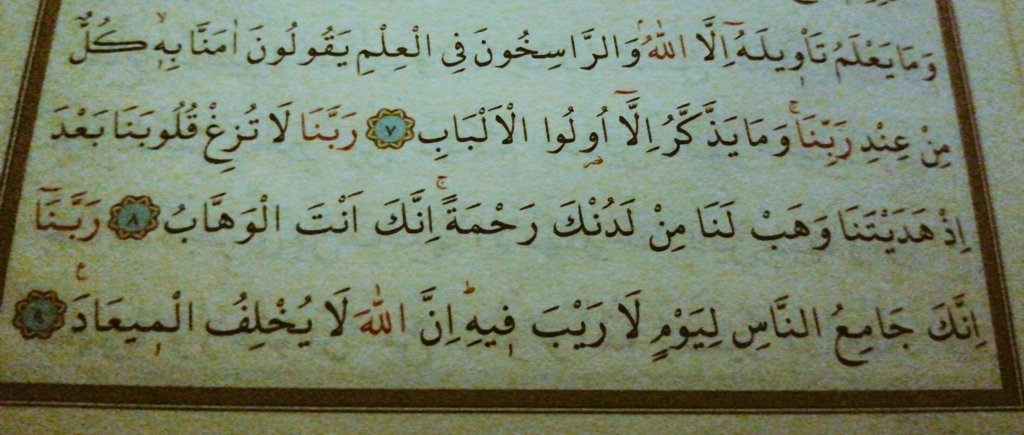 وَمَا يَعْلَمُ تَأْو۪يلَهُٓ اِلَّا اللّٰهُۢ وَالرَّاسِخُونَ فِي الْعِلْمِ يَقُولُونَ اٰمَنَّا بِه۪ۙ كُلٌّ
مِنْ عِنْدِ رَبِّنَاۚ وَمَا يَذَّكَّرُ اِلَّٓا اُو۬لُوا الْاَلْبَابِ ٧ رَبَّنَا لَا تُزِغْ قُلُوبَنَا بَعْدَ
اِذْ هَدَيْتَنَا وَهَبْ لَنَا مِنْ لَدُنْكَ رَحْمَةًۚ اِنَّكَ اَنْتَ الْوَهَّابُ ٨ رَبَّنَٓا
اِنَّكَ جَامِعُ النَّاسِ لِيَوْمٍ لَا رَيْبَ ف۪يهِۜ اِنَّ اللّٰهَ لَا يُخْلِفُ الْم۪يعَادَ۟ ٩